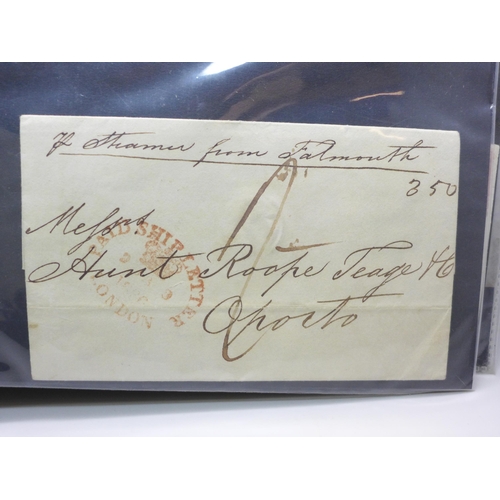 ℘ Steamer from Falmouth
350
Messrs
Hunt Roope Teage & Co
Oporto
PAID SHIP LETTER
LONDON